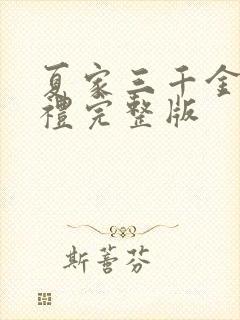 夏家三千金
禮完整版
斯蕾芬